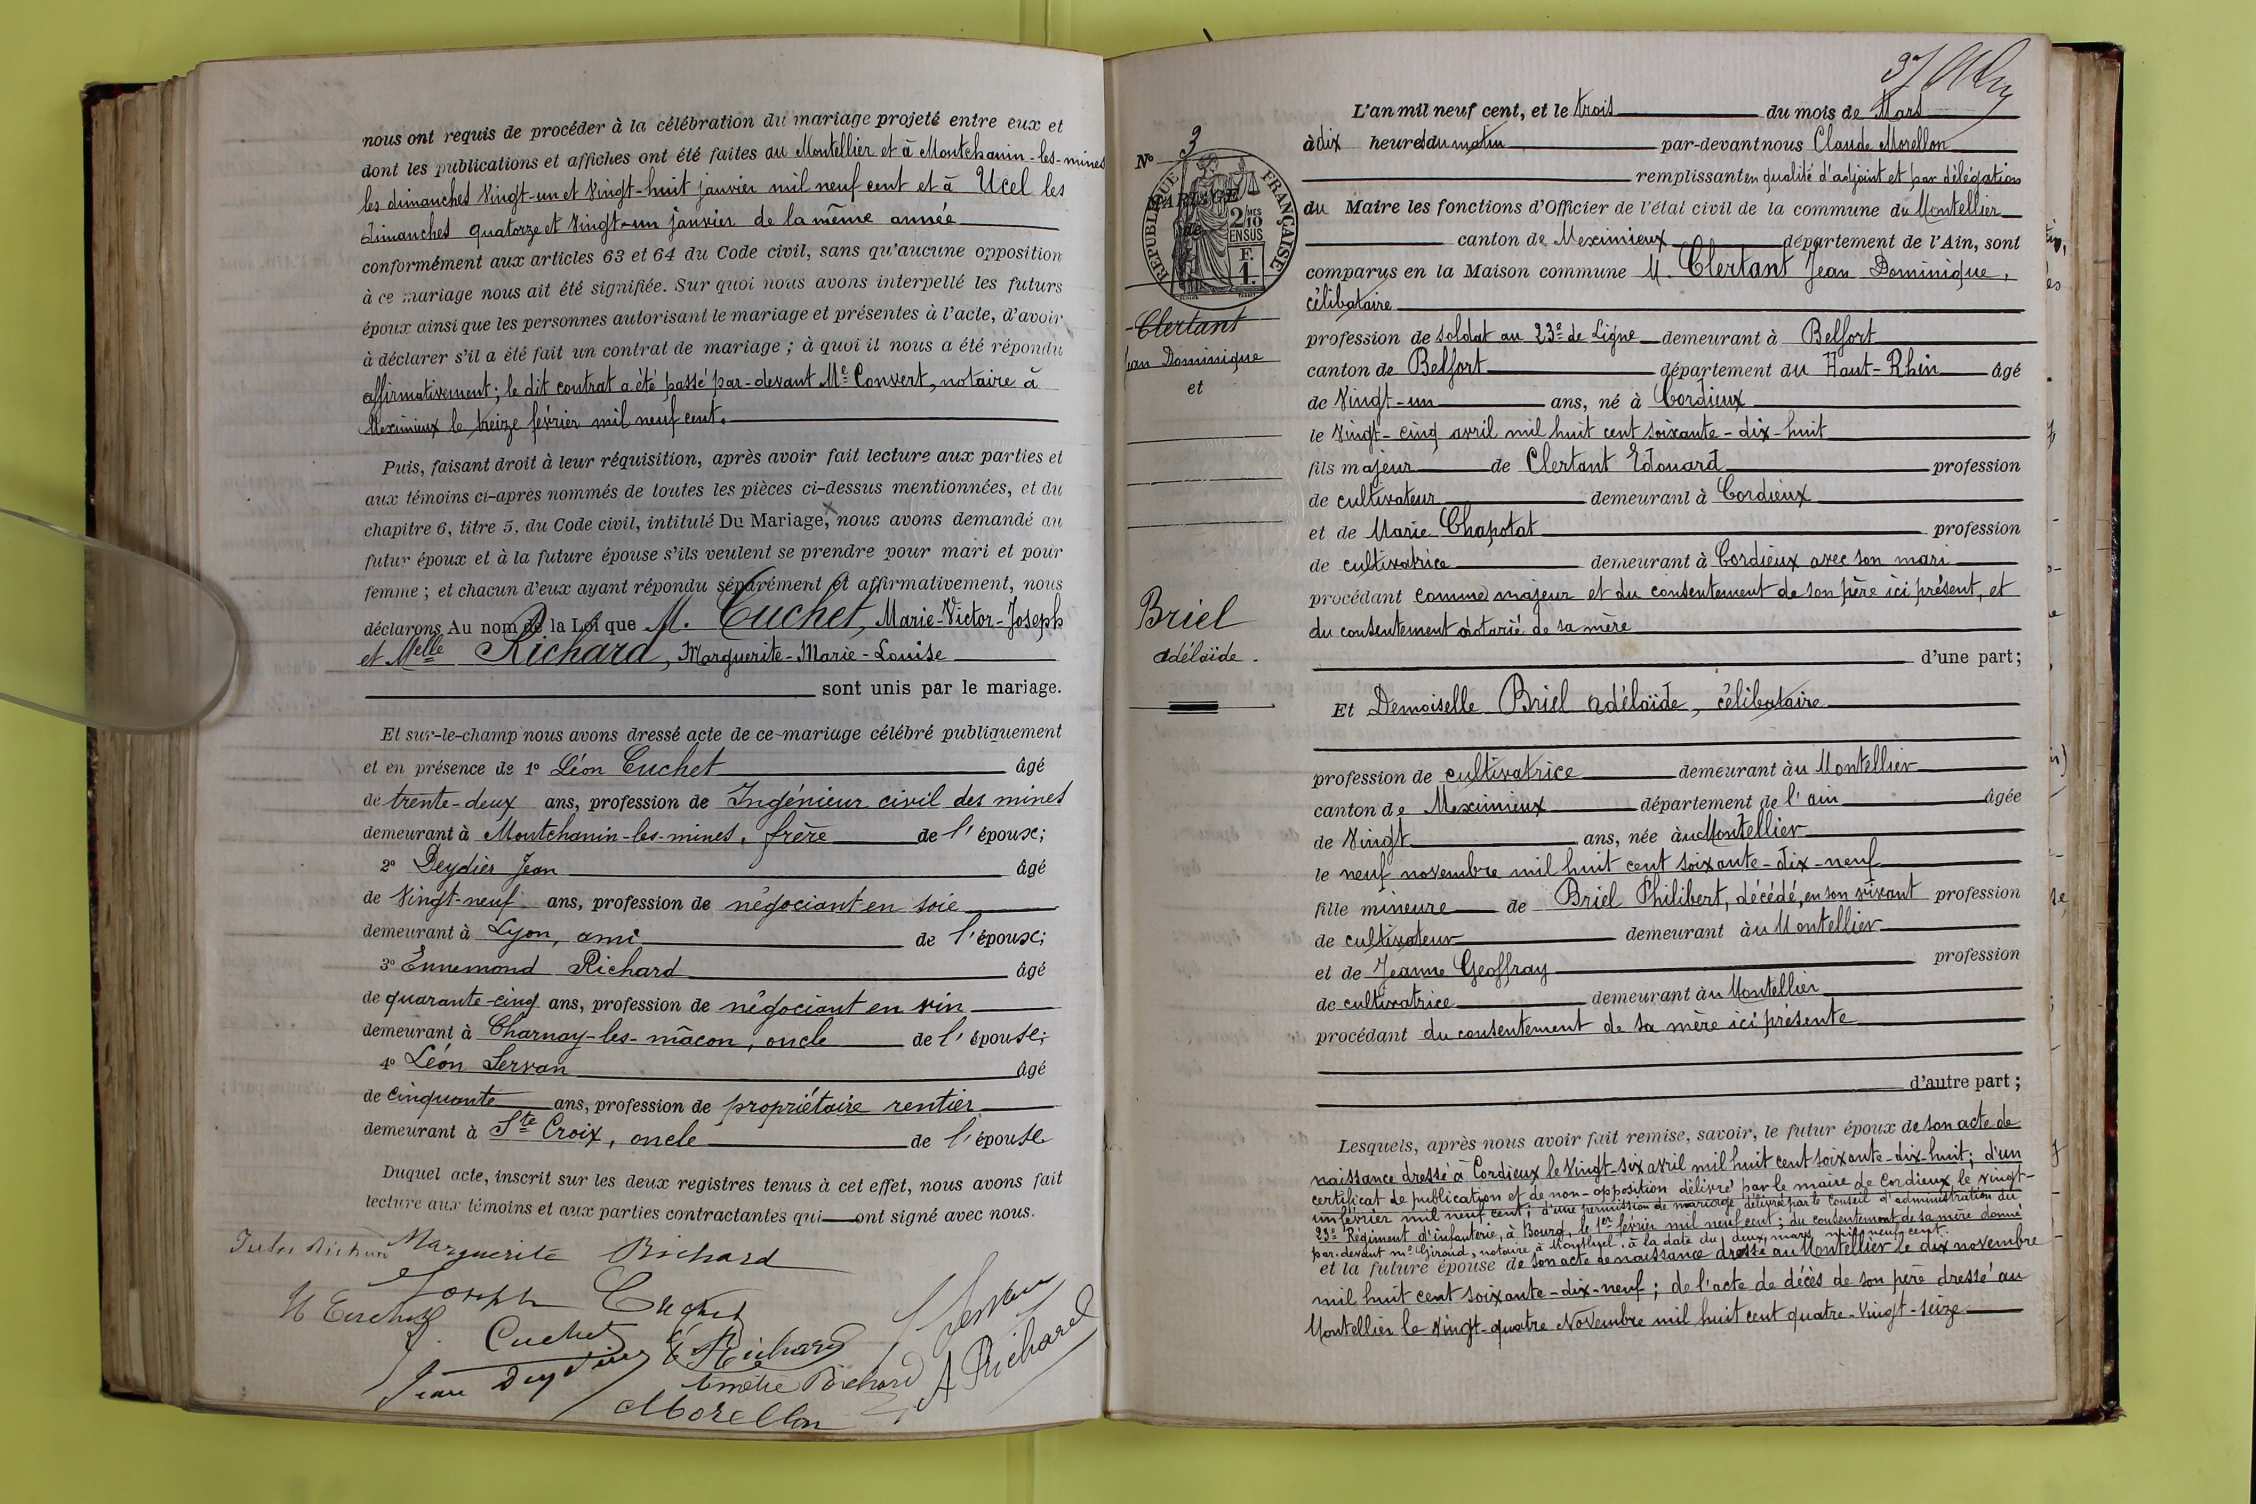 nous ont requis de procéder à la célébration du mariage projeté entre eux et
dont les publications et affiches ont été faites au Montellier et à Montchanin-les-mines
les dimanches vingt-un et vingt-huit janvier mil neuf cent et à Ucel les
dimanches quatorze et vingt-un janvier de la même année
conformément aux articles 63 et 64 du Code civil, sans qu'aucune opposition
à ce mariage nous ait été signifiée. Sur quoi nous avons interpellé les futurs
époux ainsi que les personnes autorisant le mariage et présentes à l'acte, d'avoir
à déclarer s'il a été fait un contrat de mariage ; à quoi il nous a été répondu
affirmativement ; le dit contrat a été passé par-devant Me Convert, notaire à
Meximieux le treize février mil neuf cent.
Puis, faisant droit à leur réquisition, après avoir fait lecture aux parties et
aux témoins ci-après nommés de toutes les pièces ci-dessus mentionnées, et du
chapitre 6, titre 5, du Code civil, intitulé Du Mariage, nous avons demandé au
futur époux et à la future épouse s'ils veulent se prendre pour mari et pour
femme ; et chacun d'eux ayant répondu séparément et affirmativement, nous
déclarons Au nom de la Loi que M. Cuchet, Marie-Victor-Joseph
et Melle Richard, Marguerite-Marie-Louise
sont unis par le mariage.
Et sur-le-champ nous avons dressé acte de ce mariage célébré publiquement
et en présence de 1° Léon Cuchet âgé
de trente-deux ans, profession de Ingénieur civil des mines
demeurant à Montchanin-les-mines, frère de l'époux ;
2° Deydier Jean âgé
de vingt-neuf ans, profession de négociant en soie
demeurant à Lyon, ami de l'époux ;
3° Ennemond Richard âgé
de quarante-cinq ans, profession de négociant en vin
demeurant à Charnay-les-mâcon, oncle de l'épouse ;
4° Léon Servan âgé
de cinquante ans, profession de propriétaire rentier
demeurant à Ste Croix, oncle de l'épouse
Duquel acte, inscrit sur les deux registres tenus à cet effet, nous avons fait
lecture aux témoins et aux parties contractantes qui ont signé avec nous.
Marguerite Richard
Joseph Cuchet
Cuchet E Richard
Jean Deydier
Richard A Richard
CMorellon
37
N° 3
MARIAGE
de
RÉPUBLIQUE FRANÇAISE
2/10 MES
EN SUS
F.
1.
Clertant
Jean Dominique
et
Briel
Adélaïde.
L'an mil neuf cent, et le trois du mois de Mars
à dix heures du matin par-devant nous Claude Morellon
remplissant en qualité d'adjoint et par délégation
du Maire les fonctions d'Officier de l'état civil de la commune du Montellier
canton de Meximieux département de l'Ain, sont
comparus en la Maison commune M. Clertant Jean Dominique,
célibataire
profession de soldat au 23e de Ligne demeurant à Belfort
canton de Belfort département du Haut-Rhin âgé
de vingt-un ans, né à Cordieux
le vingt-cinq avril mil huit cent soixante-dix-huit
fils majeur de Clertant Edouard profession
de cultivateur demeurant à Cordieux
et de Marie Chapotat profession
de cultivatrice demeurant à Cordieux avec son mari
procédant comme majeur et du consentement de son père ici présent, et
du consentement notarié de sa mère
d'une part ;
Et Demoiselle Briel Adélaïde, célibataire
profession de cultivatrice demeurant au Montellier
canton de Meximieux département de l'ain âgée
de vingt ans, née au Montellier
le neuf novembre mil huit cent soixante-dix-neuf
fille mineure de Briel Philibert, décédé, en son vivant profession
de cultivateur demeurant au Montellier
et de Jeanne Geoffray profession
de cultivatrice demeurant au Montellier
procédant du consentement de sa mère ici présente
d'autre part ;
Lesquels, après nous avoir fait remise, savoir, le futur époux de son acte de
naissance dressé à Cordieux le vingt-six avril mil huit cent soixante-dix-huit ; d'un
certificat de publication et de non-opposition délivré par le maire de Cordieux le vingt-
un février mil neuf cent ; d'une permission de mariage délivrée par le Conseil d'administration du
23e Régiment d'infanterie, à Bourg, le 1er février mil neuf cent ; du consentement de sa mère donné
par-devant me Giraud, notaire à Montluel, à la date du deux mars mil neuf cent.
et la future épouse de son acte de naissance dressé au Montellier le dix novembre
mil huit cent soixante-dix-neuf ; de l'acte de décès de son père dressé au
Montellier le vingt-quatre Novembre mil huit cent quatre-vingt-seize